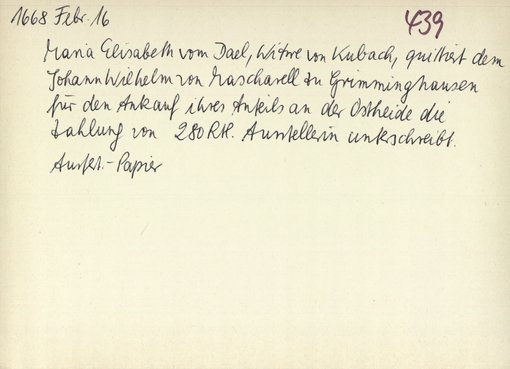 1668 Febr. 16
439
Maria Elisabeth vom Dael, Witwe von Kubach, quittiert dem
Johann Wilhelm von Mascharell zu Grimminghausen
für den Ankauf ihres Anteils an der Ostheide die
Zahlung von 280 Rtl. Ausstellerin unterschreibt.
Ausfert.-Papier